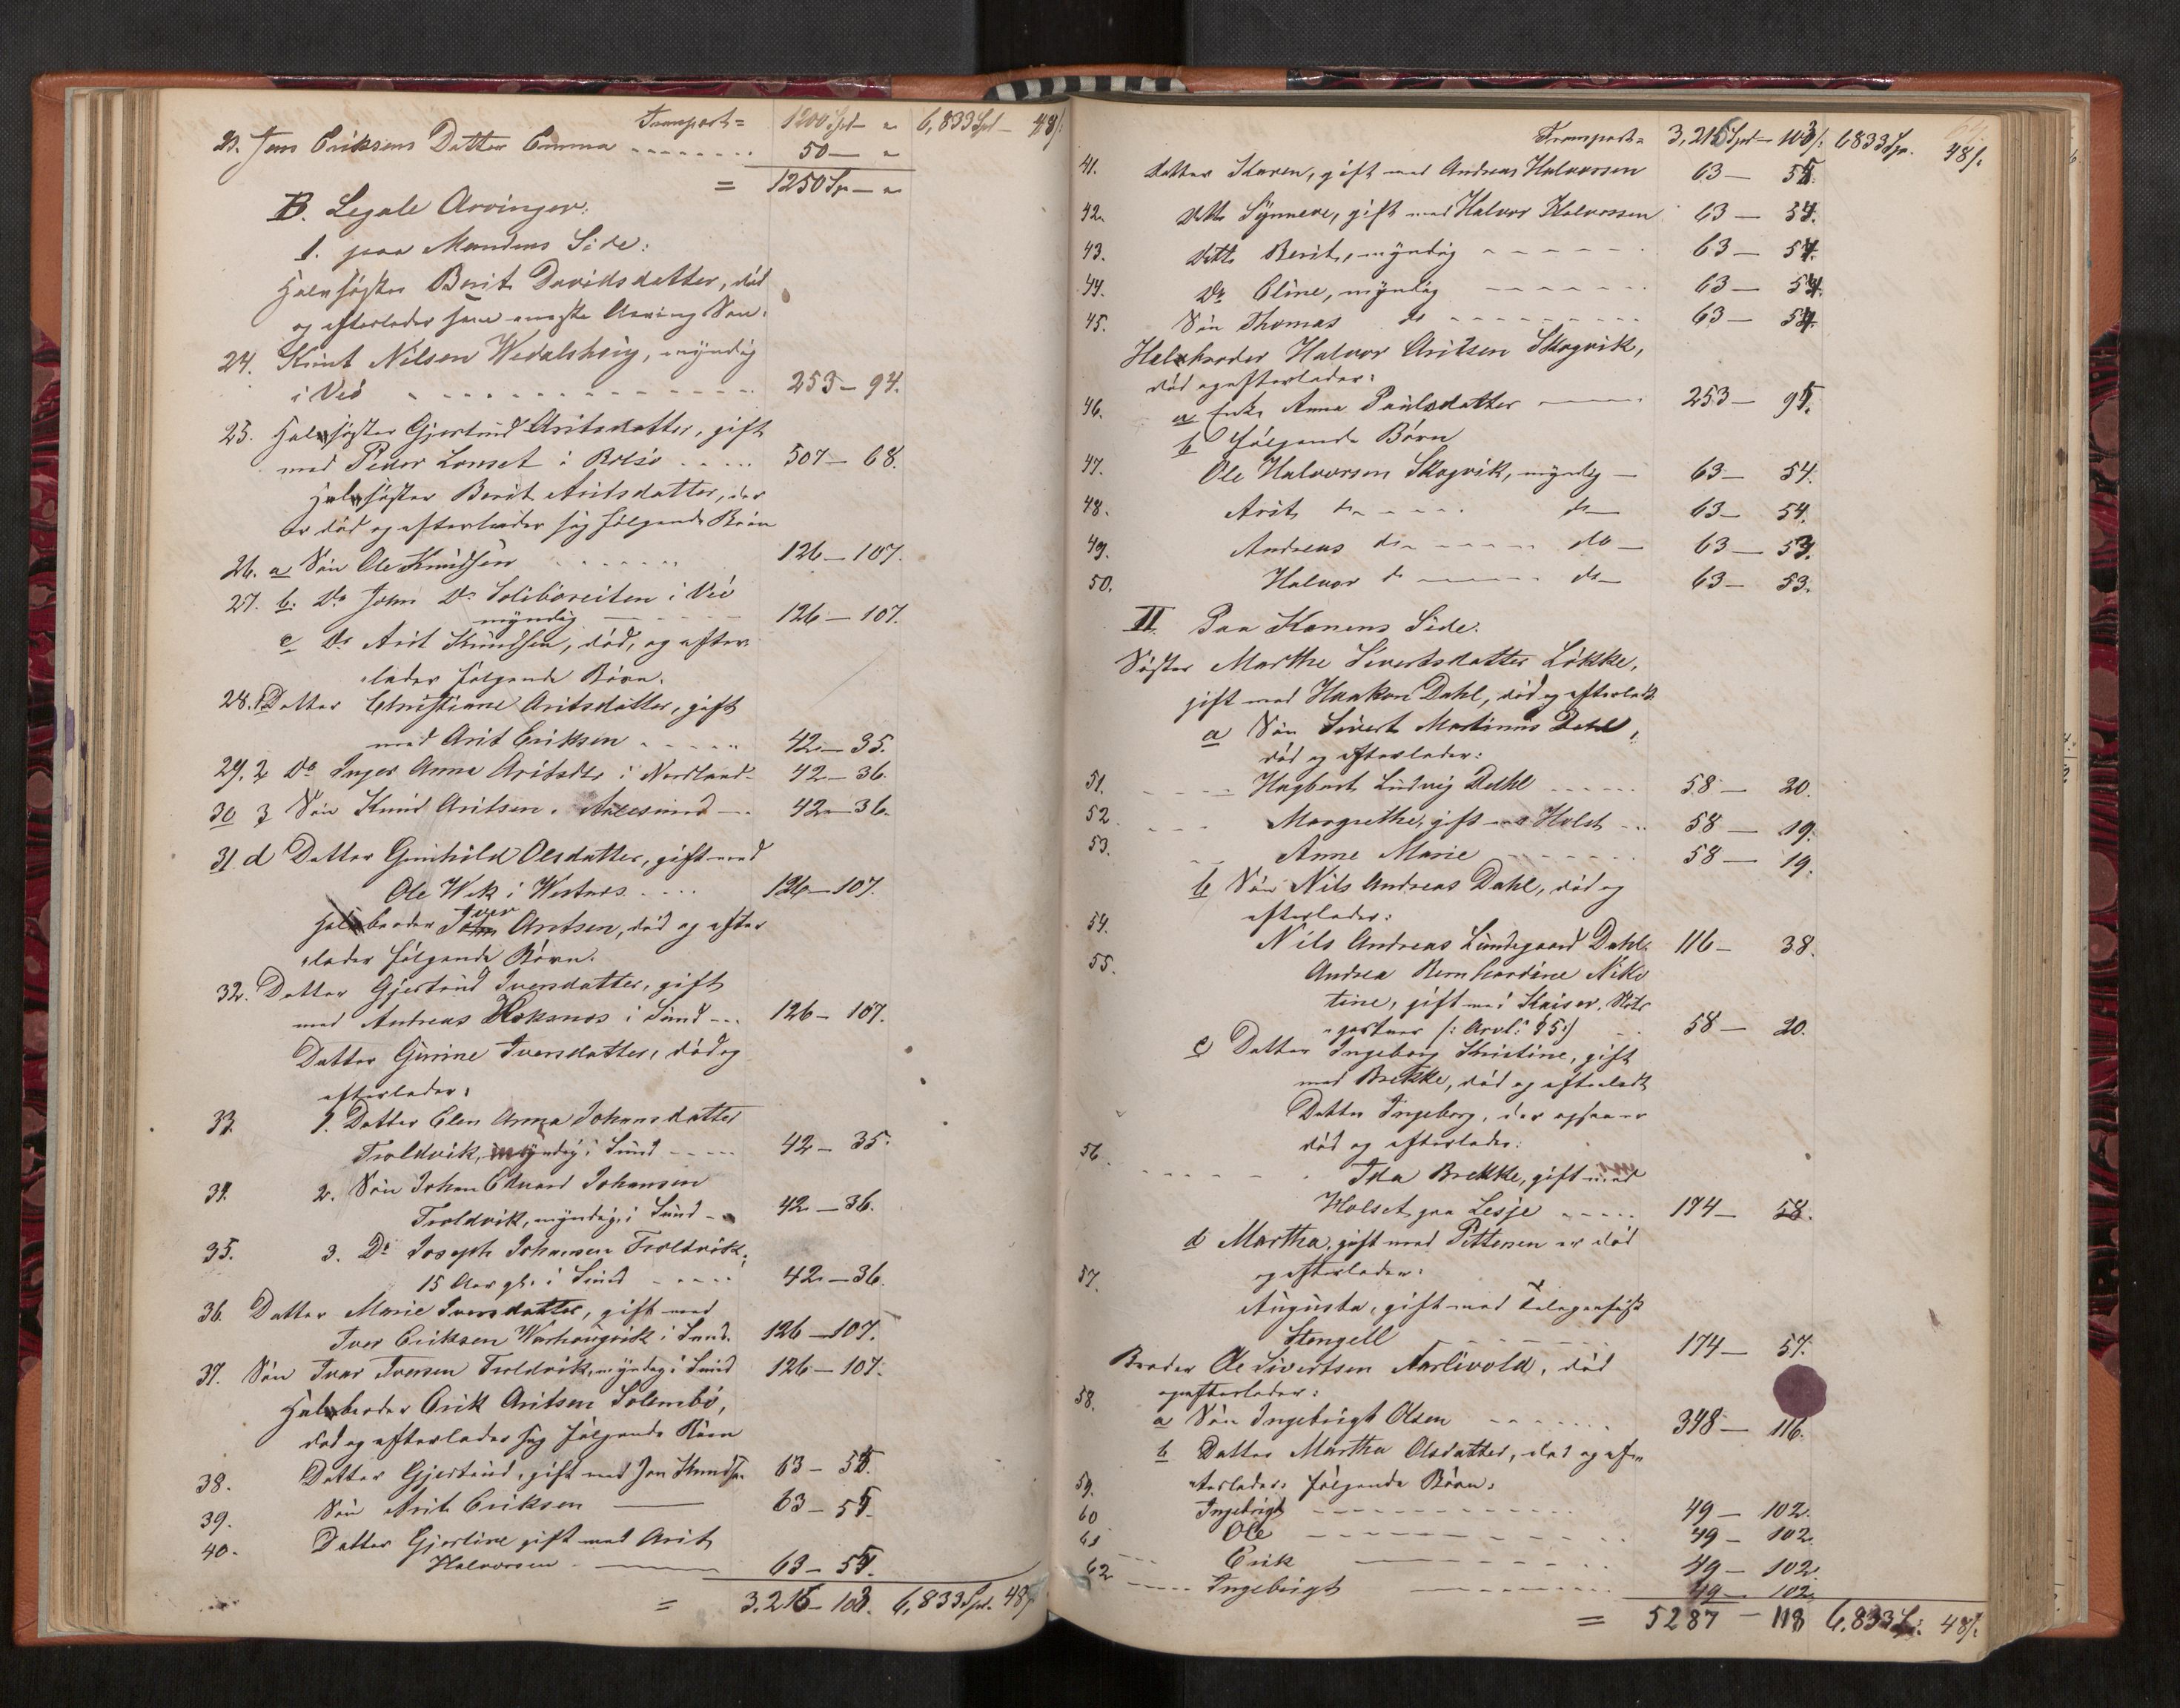 Transport = 1200 Spd - " 6,833 Spd - 48/.
23. Jens Eriksens Datter Emma - - - - - 50 - "
= 1250 Sp - "
B. Legale Arvinger:
1. paa Mandens Side:
Halvsøster Berit Davidsdatter, død
og efterlader som eneste Arving Søn:
24. Knut Nilsen Wedalshoug, myndig
i Veø - - - - - - - - 253 - 94.
25. Halvsøster Gjertrud Aritsdatter, gift
med Peder Lonset i Bolsø - - - - 507 - 68.
Halvsøster Berit Aritsdatter, der
er død og efterlader sig følgende Børn
26. a Søn Ole Knudsen - - - - - - 126 - 107.
27. b. Do John Do Solibøreiten i Veø
myndig - - - - - 126 - 107.
c Do Arit Knudsen, død, og efter-
lader følgende Børn.
28. 1 Datter Christiane Aritsdatter, gift
med Arit Eriksen - - - - - 42 - 35.
29. 2 Do Inger Anna Aritsdtr i Nordland - 42 - 36.
30 3 Søn Knud Aritsen i Aalesund - - - 42 - 36.
31. d Datter Gunhild Olsdatter, gift med
Ole Wik i Westnes - - - - 126 - 107.
Halvbroder Iver Aritsen, død og efter
lader følgende Børn.
32. Datter Gjertrud Iversdatter, gift
med Andreas Hoksnes i Sund - - - 126 - 107.
Datter Gurine Iversdatter, død og
efterlader:
33. 1. Datter Elen Anna Johansdatter
Troldvik, myndig i Sund - - - - - 42 - 35.
34. 2. Søn Johan Edvard Johansen
Troldvik, myndig i Sund - - 42 - 36.
35. 3. Do Joseph Johansen Troldvik,
15 Aar gl. i Sund - - - - 42 - 36.
36. Datter Marie Iversdatter, gift med
Iver Eriksen Warhaugvik i Sund. 126 - 107.
37. Søn Ivar Iversen Troldvik, myndig i Sund 126 - 107.
Halvbroder Erik Aritsen Solembø,
død og efterlader sig følgende Børn
38. Datter Gjertrud, gift med Jon Knudsen 63 - 55.
39. Søn Arit Eriksen 63 - 55.
40. Datter Gjertine gift med Arit
Halvorsen 63 - 55.
= 3.216 - 103. 6,833 Spd. 48/.
Transport = 3,216 Spd - 103/. 6833 Sp. 48/.
41. Datter Karen, gift med Andreas Halvorsen 63 - 55.
42. Datter Synneve, gift med Halvor Halvorsen 63 - 54.
43. Datter Berit, myndig - - - - - - 63 - 54.
44. Do Oline, myndig - - - - - - 63 - 54.
45. Søn Thomas do - - - - - - - 63 - 54.
Halvbroder Halvor Aritsen Skogvik,
død og efterlader:
46. a Enke Anna Paulsdatter 253 - 95.
b følgende Børn
47. Ole Halvorsen Skogvik, myndig - 63 - 54.
48. Arit do - - - - - do - 63 - 54.
49. Andreas do - - - - - do - 63 - 53.
50. Halvor do - - - - - do - 63 - 53.
II Paa Konens Side.
Søster Marthe Sivertsdatter Løkke,
gift med Haakon Dahl, død og efterladt
a Søn Sivert Martinus Dahl,
død og efterlader:
51. - - - - Hagbart Ludvig Dahl - - - - - - 58 - 20.
52 - - - Margrethe, gift med Holst - - - 58 - 19.
53. - - Anne Marie - - - - - - 58 - 19.
b Søn Nils Andreas Dahl, død og
efterlader:
54. Nils Andreas Lundegaard Dahl. 116 - 38.
55. Andrea Bernhardine Niko
tine, gift med Kaiser, Slots
gartner (: Arvel: § 5:) - - 58 - 20.
c Datter Ingeborg Kristine, gift
med Brekke, død og efterladt
Datter Ingeborg, der ogsaa er
død og efterlader:
56. - - - - - Ida Brekke, gift med
Holset paa Lesje - - - - - 174 - 58.
d Martha, gift med Pettersen er død
og efterlader:
57. Augusta, gift med Telegrafist
Stengell - - - - - - - 174 - 57.
Broder Ole Sivertsen Aarlivold, død
og efterlader:
58. a Søn Ingebrigt Olsen - - - - - - - 348 - 116.
b Datter Martha Olsdatter, død og ef-
terlader følgende Børn:
59. Ingebrigt - - - - - - - - - 49 - 102.
60 Ole - - - - - - - - - 49 - 102.
61 - - - Erik - - - - - 49 - 102.
62 - - - - - Ingebrigt - - - - 49 - 102
= 5287 - 118 6,833 Sp: 48/.